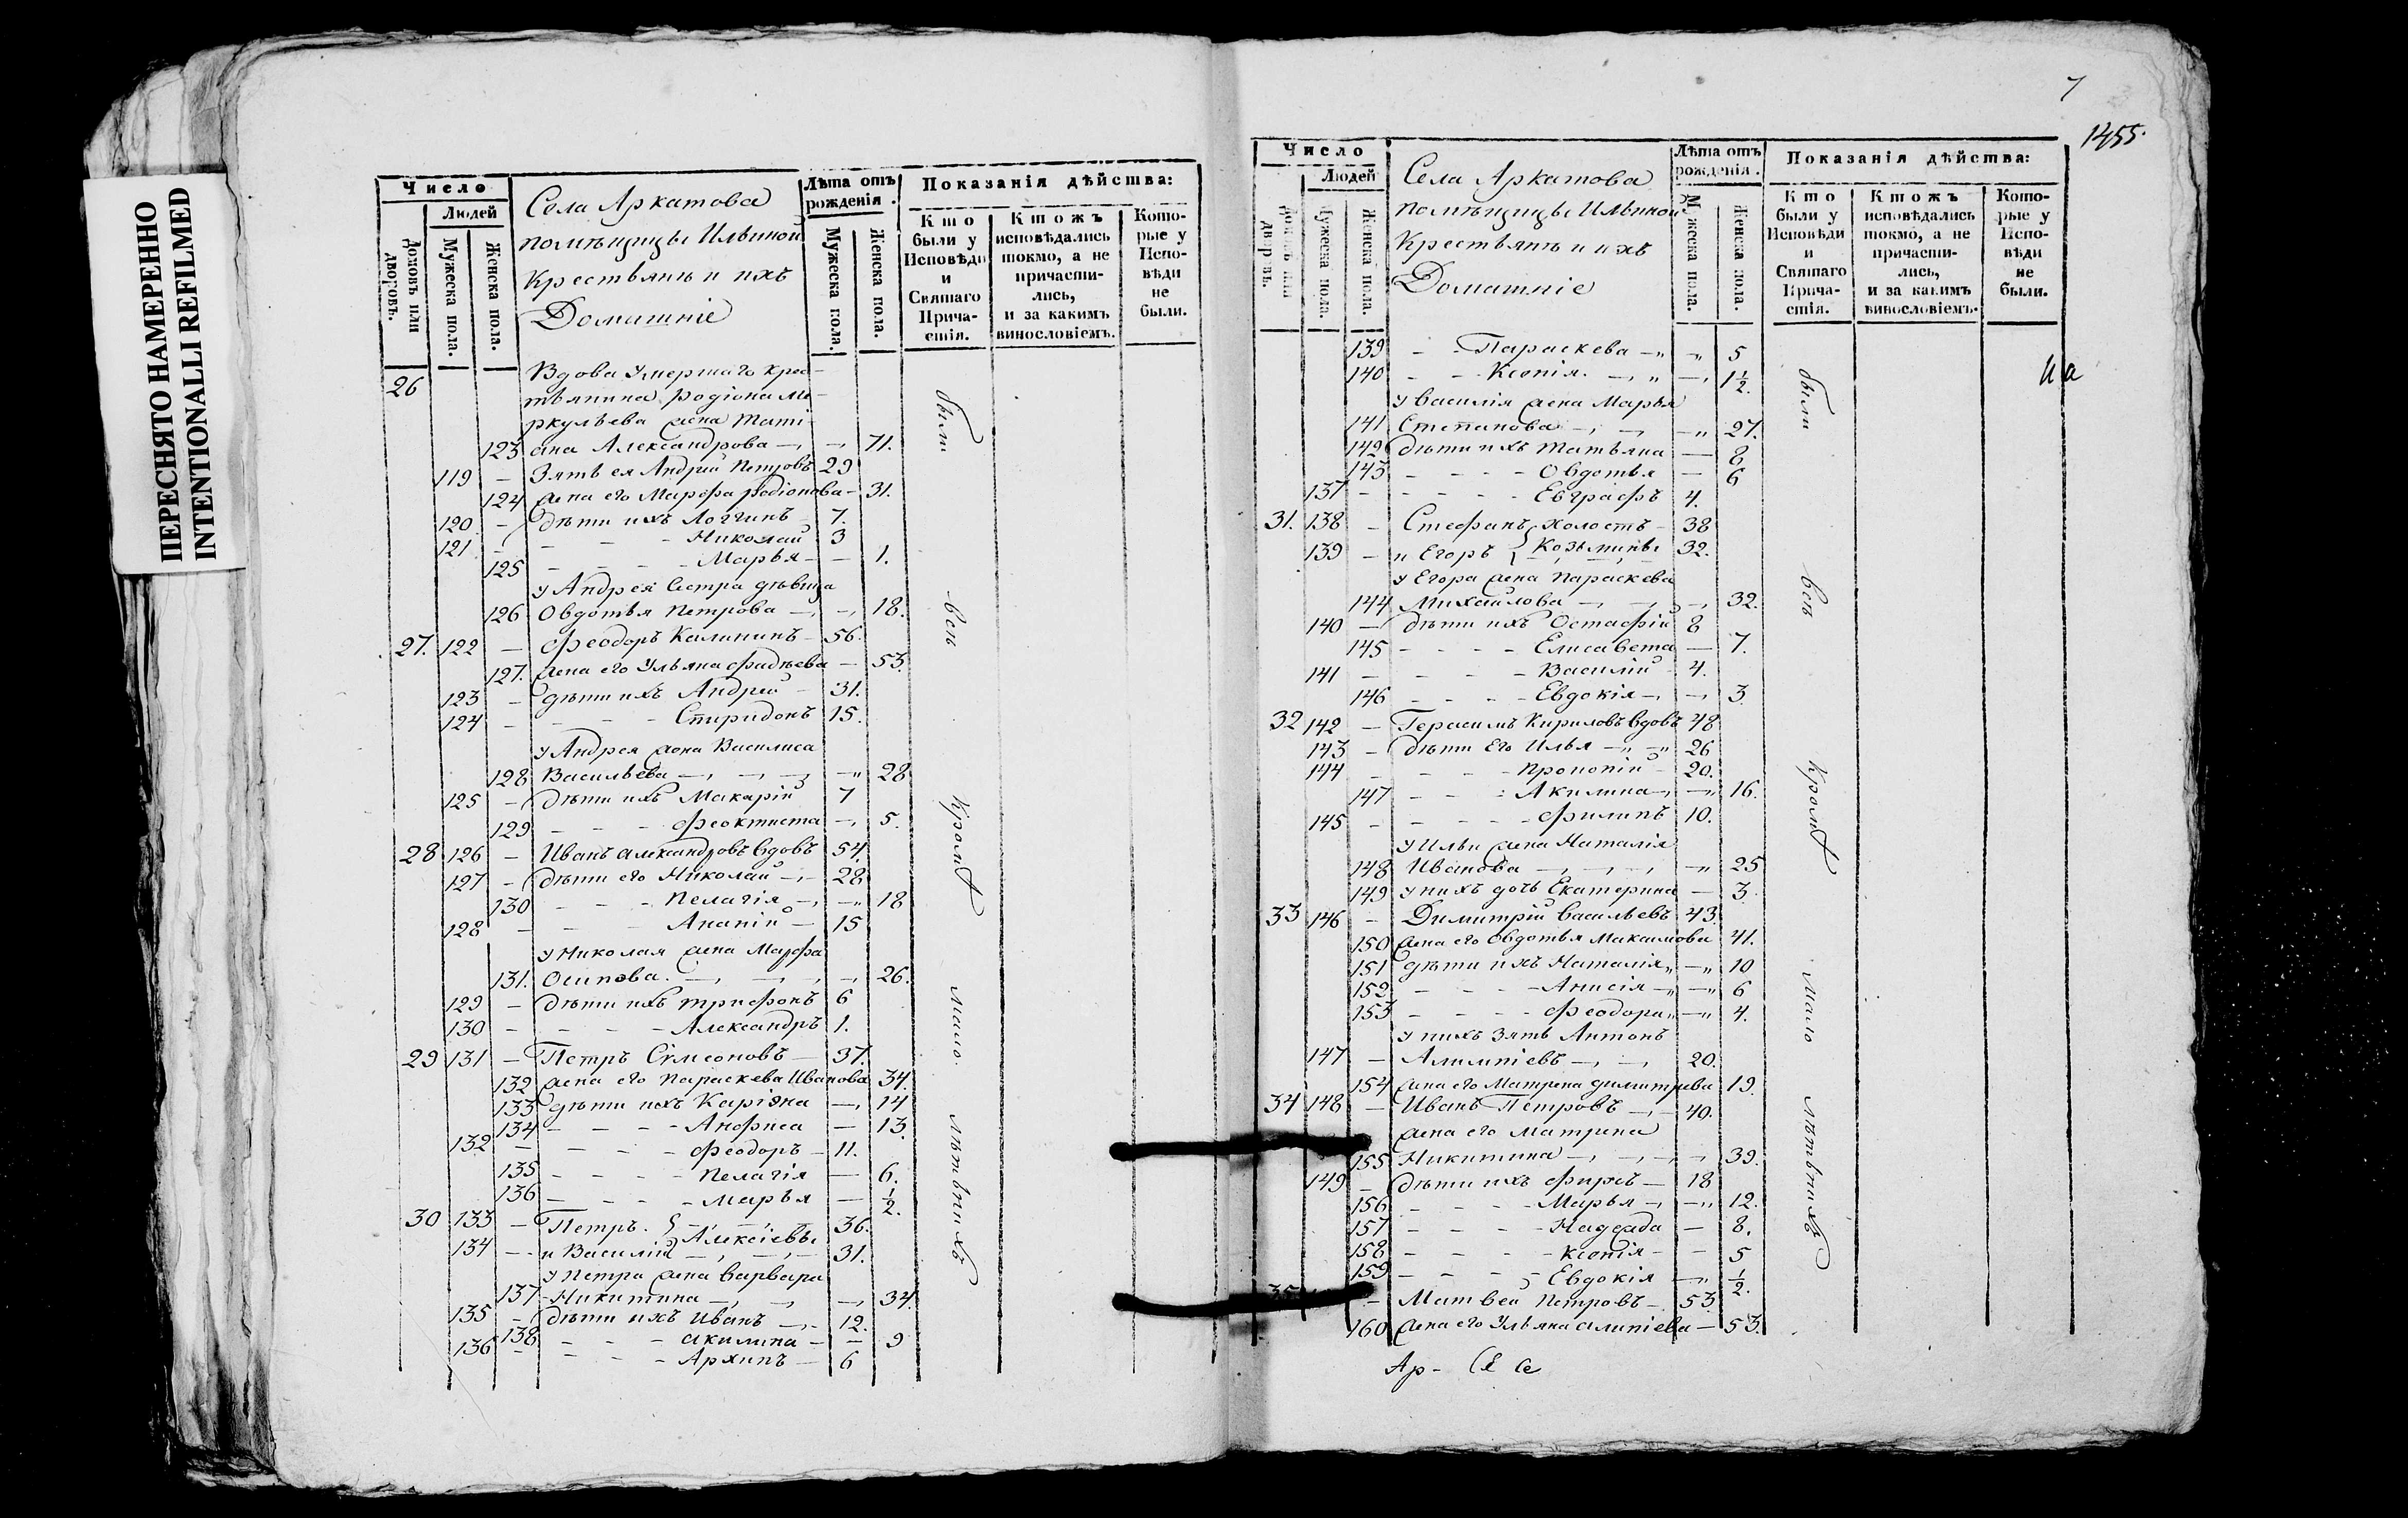 ПЕРЕСНЯТО НАМЕРЕННО
INTENTIONALLI REFILMED
Число
Людей
Домовъ или дворовъ.
Мужеска пола.
Женска пола.
Села Аркатова
помѣщицы Ильиной
Крестьянъ и ихъ
Домашніе
Лѣта отъ рожденія.
Мужеска пола.
Женска пола.
Показанія дѣйства:
Кто были у Исповѣди и Святаго Причастія.
Ктожъ исповѣдались токмо, а не причастились, и за какимъ винословіемъ.
Которые у Исповѣди не были.
26 Вдова умершаго крес-
тьянина Родіона Ме-
ркульева жена Тати-
123 ана Александрова 71.
119 - Зять ея Андрей Петровъ 29
124 жена его Марфа Родіонова - 31.
120 - дѣти ихъ Логгинъ 7.
121 - Николай 3
125 Марья - 1.
у Андрея Сестра дѣвица
126 Овдотья Петрова 18.
27. 122 - Феодоръ Калининъ 56.
127. жена его Ульяна Фадѣева - 53.
123 - дѣти ихъ Андрей - 31.
124 - Спиридонъ 15.
у Андрея жена Василиса
128 Васильева 28
125 - дѣти ихъ Макарій 7
129 Феоктиста 5.
28 126 - Иванъ Александровъ вдовъ 54.
127 - дѣти его Николай 28
130 Пелагія 18
128 - Ананій - 15
у Николая жена Марфа
131. Осипова. 26.
129 - дѣти ихъ Трифонъ 6
130 - Александръ 1.
29 131 - Петръ Симеоновъ 37.
132 жена его Параскева Иванова 34.
133 дѣти ихъ 14
134 Анфиса - 13.
132 - Феодоръ - 11.
135 Пелагія - 6.
136 Марья - 1/2.
30 133 - Петръ. } Алексіевы 36.
134 - и Василій 31.
у Петра жена Варвара
137 Никитина 34.
135 - дѣти ихъ Иванъ 12.
138 Акилина - 9
136 - Архипъ 6
были всѣ кромѣ мало лѣтнихъ
7
1455.
Число
Людей
Домовъ или дворовъ.
Мужеска пола.
Женска пола.
Села Аркатова
помѣщицы Ильиной
Крестьянъ и ихъ
Домашніе
Лѣта отъ рожденія.
Мужеска пола.
Женска пола.
Показанія дѣйства:
Кто были у Исповѣди и Святаго Причастія.
Ктожъ исповѣдались токмо, а не причастились, и за какимъ винословіемъ.
Которые у Исповѣди не были.
139 - - Параскева 5
140 - - Ксенія. 1 1/2.
у Василія жена Марья
141 Степанова 27.
142 дѣти ихъ Татьяна - 8
143 - Овдотья - 6
137 - Евграфъ 4.
31. 138 - Стефанъ } холостъ - 38
139 - и Егоръ } Козьмины 32.
у Егора жена Параскева
144 Михайлова 32.
140 - дѣти ихъ Остафій 8
145 - Елисавета - 7.
141 - Василій - 4.
146 - Евдокія 3.
32 142 - Герасимъ Кириловъ вдовъ 48
143 - дѣти его Илья 26
144 - 20.
147 - Акилина 16.
145 - Филипъ 10.
у Ильи жена Наталія
148 Иванова 25
149 у нихъ дочь Екатерина - 3.
33 146 - Димитрій Васильевъ 43.
150 жена его Овдотья Максимова 41.
151 дѣти ихъ Наталія 10
152 - Анисія 6
153 - Феодора 4.
у нихъ Зять Антонъ
147 - Алимпіевъ 20.
154 жена его Матрена Димитрева 19.
34 148 - Иванъ Петровъ 40.
жена его Матрена
155 Никитина 39.
149 - дѣти ихъ Фирсъ 18
156 - Марья 12.
157 - Надежда - 8.
158 - Ксенія - 5
159 - Евдокія 1/2.
35 - Матвей Петровъ 53.
160 жена его Ульяна Алипіева - 53.
были всѣ кромѣ мало лѣтнихъ